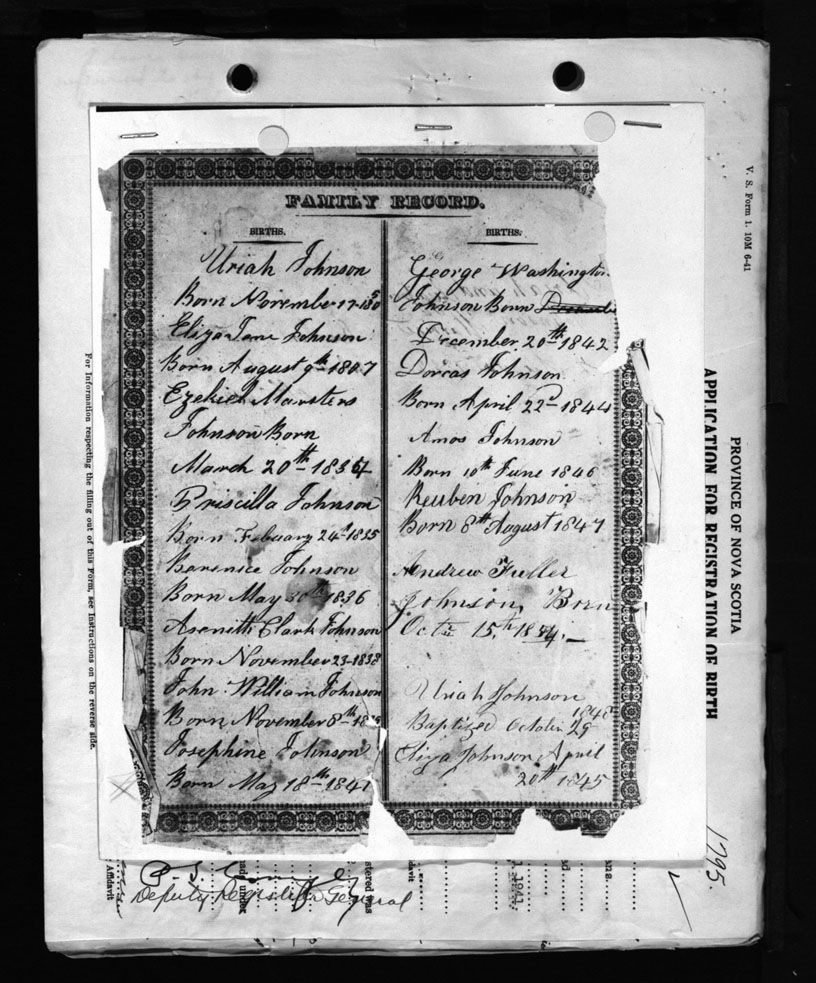 FAMILY RECORD.
BIRTHS.
Uriah Johnson
Born November 17 180
Eliza Jane Johnson
Born August 9th 1807
Ezekiel Marsters
Johnson Born
March 20th 1834
Priscilla Johnson
Born Febuary 24th 1835
Barensice Johnson
Born May 30th 1836
Asenith Clark Johnson
Born November 23 1838
John William Johnson
Born November 8th 1839
Josephine Johnson
Born May 18th 1841
BIRTHS.
George Washington
Johnson Born
December 20th 1842
Dorcas Johnson
Born April 22d 1844
Amos Johnson
Born 10th June 1846
Reuben Johnson
Born 8th August 1847
Andrew Fuller
Johnson, Born
Oct 15th 1854.
Uriah Johnson
1848
Baptized October 29
Eliza Johnson April
20th 1845
Deputy Registrar General
V. S. Form 1. 10M 6-41
PROVINCE OF NOVA SCOTIA
APPLICATION FOR REGISTRATION OF BIRTH
1795.
For Information respecting the filling out of this Form, see Instructions on the reverse side.
Affidavit
made under
stered was
Affidavit
1941